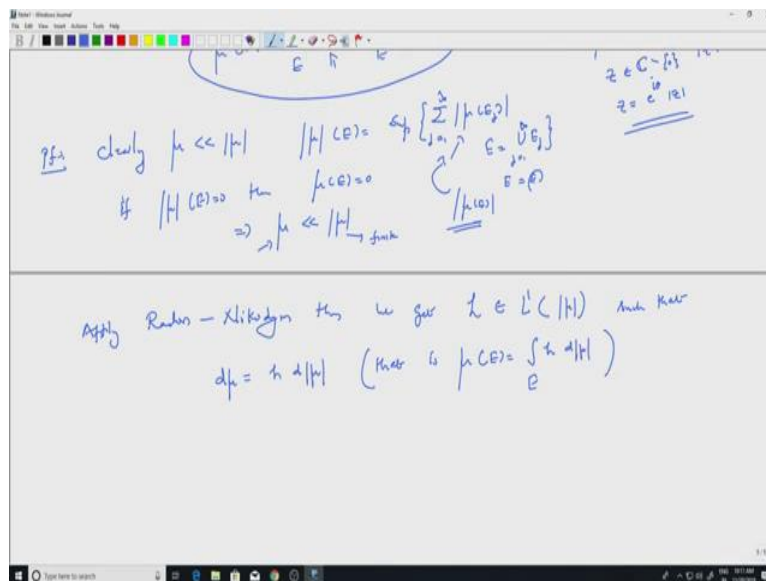 Note1 - Windows Journal
File Edit View Insert Actions Tools Help
z ∈ ℂ - {0}
z = e^{iθ} |z|
Pf: Clearly μ << |μ| |μ|(E) = sup { ∑_{j=1}^∞ |μ(E_j)|
E = ∪_{j=1}^∞ E_j }
If |μ|(E)=0 then μ(E)=0
E = (E)
|μ(E)|
⇒ μ << |μ| → finite
Apply Radon - Nikodym thm we get h ∈ L¹(|μ|) such that
dμ = h d|μ| (that is μ(E) = ∫_E h d|μ| )
Type here to search